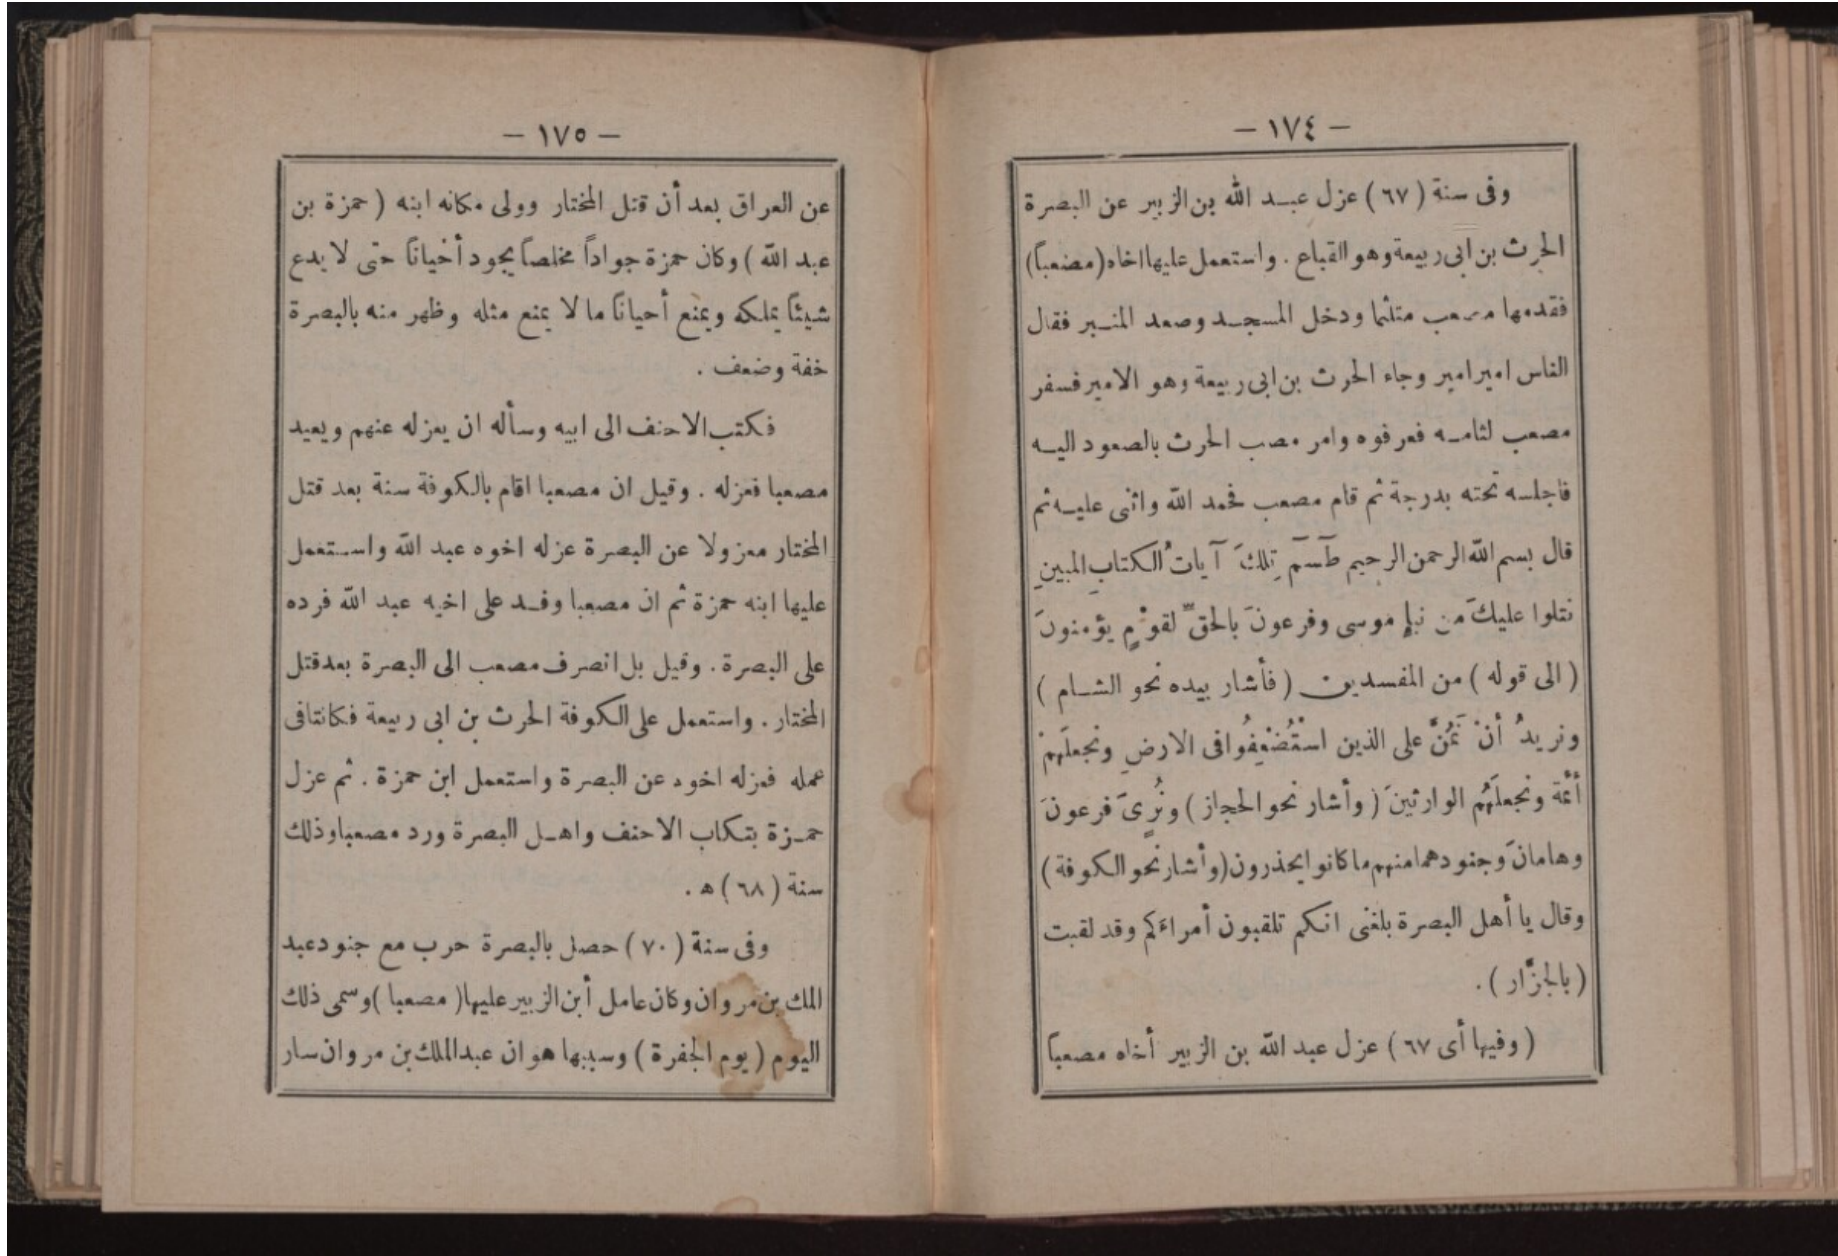 — ١٧٤ —
وفى سنة ( ٦٧ ) عزل عبد الله بن الزبير عن البصرة
الحرث بن ابى ربيعة وهو القباع . واستعمل عليها اخاه (مصعباً)
فقدمها مصعب متلثما ودخل المسجد وصعد المنبر فقال
الناس امير امير وجاء الحرث بن ابى ربيعة وهو الامير فسفر
مصعب لثامه فعرفوه وامر مصب الحرث بالصعود اليه
فاجلسه تحته بدرجة ثم قام مصعب فحمد الله واثنى عليه ثم
قال بسم الله الرحمن الرحيم طَسَمَ تِلكَ آياتُ الكتابِ المبينِ
نتلوا عليكَ من نبإِ موسى وفرعونَ بالحقِّ لقوْمٍ يؤمنونَ
( الى قوله ) من المفسدين ( فأشار بيده نحو الشام )
ونريدُ أنْ نَمُنَّ على الذين اسْتُضْعِفُوا فى الارضِ ونجعلَهمْ
أئمَّة ونجعلَهُم الوارثينَ ( وأشار نحو الحجاز ) ونُرِىَ فرعونَ
وهامانَ وجنودهما منهم ما كانوا يحذرون (وأشار نحو الكوفة )
وقال يا أهل البصرة بلغنى انكم تلقبون أمراءكم وقد لقبت
( بالجزَّار ) .
( وفيها أى ٦٧ ) عزل عبد الله بن الزبير أخاه مصعباً
— ١٧٥ —
عن العراق بعد أن قتل المختار وولى مكانه ابنه ( حمزة بن
عبد الله ) وكان حمزة جواداً مخلصاً يجود أخياناً حتى لا يدع
شيئاً يملكه ويمنع أحياناً ما لا يمنع مثله وظهر منه بالبصرة
خفة وضعف .
فكتب الاحنف الى ابيه وسأله ان يعزله عنهم ويعيد
مصعبا فعزله . وقيل ان مصعبا اقام بالكوفة سنة بعد قتل
المختار معزولا عن البصرة عزله اخوه عبد الله واستعمل
عليها ابنه حمزة ثم ان مصعبا وفد على اخيه عبد الله فرده
على البصرة . وقيل بل انصرف مصعب الى البصرة بعد قتل
المختار . واستعمل على الكوفة الحرث بن ابى ربيعة فكانتا فى
عمله فعزله اخوه عن البصرة واستعمل ابن حمزة . ثم عزل
حمزة بتكاب الاحنف واهل البصرة ورد مصعبا وذلك
سنة ( ٦٨ ) ه .
وفى سنة ( ٧٠ ) حصل بالبصرة حرب مع جنود عبد
الملك بن مروان وكان عامل أبن الزبير عليها ( مصعبا ) وسمى ذلك
اليوم ( يوم الجفرة ) وسببها هو ان عبد الملك بن مروان سار